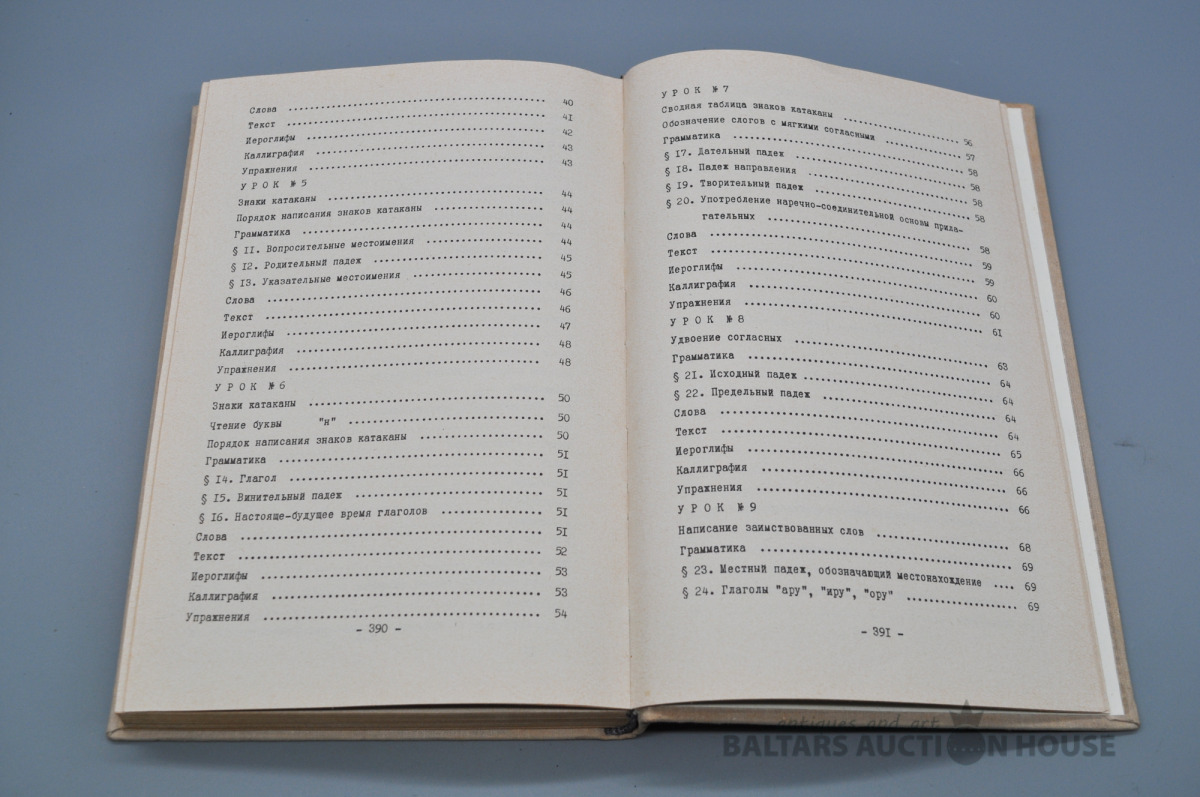 Слова .......... 40
Текст .......... 41
Иероглифы .......... 42
Каллиграфия .......... 43
Упражнения .......... 43
УРОК №5
Знаки катаканы .......... 44
Порядок написания знаков катаканы .......... 44
Грамматика .......... 44
§ 11. Вопросительные местоимения .......... 44
§ 12. Родительный падеж .......... 45
§ 13. Указательные местоимения .......... 45
Слова .......... 46
Текст .......... 46
Иероглифы .......... 47
Каллиграфия .......... 48
Упражнения .......... 48
УРОК №6
Знаки катаканы .......... 50
Чтение буквы "н" .......... 50
Порядок написания знаков катаканы .......... 50
Грамматика .......... 51
§ 14. Глагол .......... 51
§ 15. Винительный падеж .......... 51
§ 16. Настояще-будущее время глаголов .......... 51
Слова .......... 51
Текст .......... 52
Иероглифы .......... 53
Каллиграфия .......... 53
Упражнения .......... 54
- 390 -
УРОК №7
Сводная таблица знаков катаканы .......... 56
Обозначение слогов с мягкими согласными .......... 57
Грамматика .......... 58
§ 17. Дательный падеж .......... 58
§ 18. Падеж направления .......... 58
§ 19. Творительный падеж .......... 58
§ 20. Употребление наречно-соединительной основы прила-
гательных .......... 58
Слова .......... 59
Текст .......... 59
Иероглифы .......... 60
Каллиграфия .......... 60
Упражнения .......... 61
УРОК №8
Удвоение согласных .......... 63
Грамматика .......... 64
§ 21. Исходный падеж .......... 64
§ 22. Предельный падеж .......... 64
Слова .......... 64
Текст .......... 65
Иероглифы .......... 66
Каллиграфия .......... 66
Упражнения .......... 66
УРОК №9
Написание заимствованных слов .......... 68
Грамматика .......... 69
§ 23. Местный падеж, обозначающий местонахождение .... 69
§ 24. Глаголы "ару", "иру", "ору" .......... 69
- 391 -
antiques and art
BALTARS AUCTION HOUSE